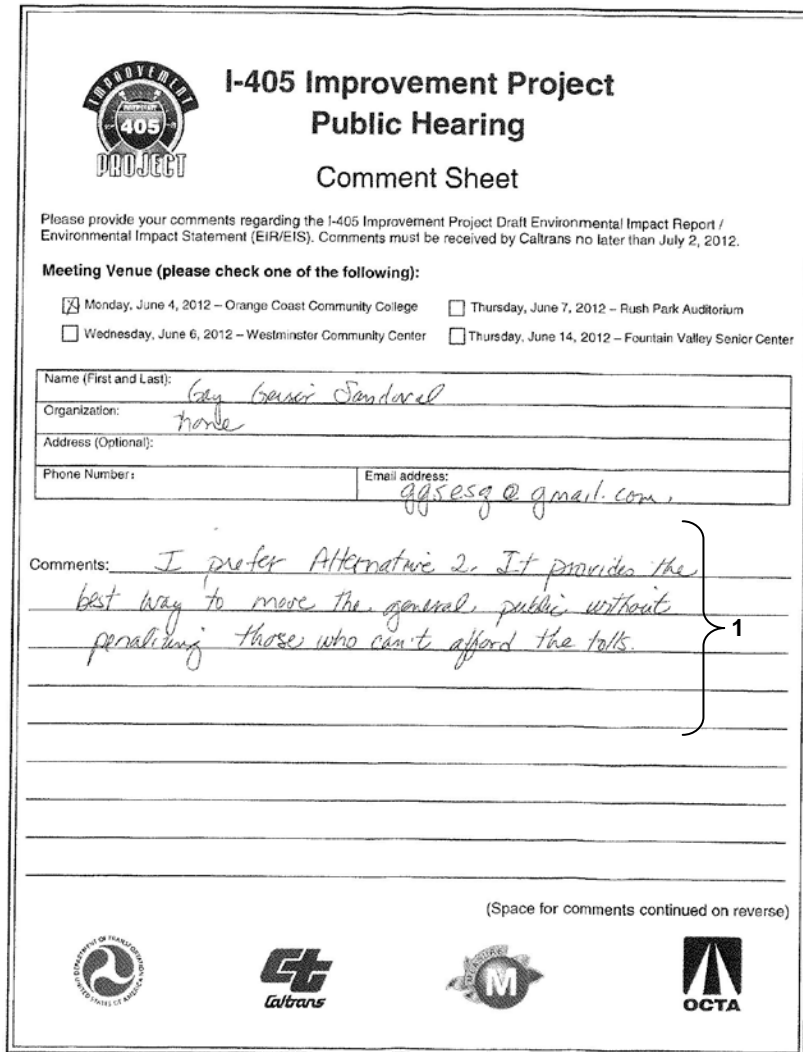 IMPROVEMENT
INTERSTATE
405
PROJECT
I-405 Improvement Project
Public Hearing
Comment Sheet
Please provide your comments regarding the I-405 Improvement Project Draft Environmental Impact Report /
Environmental Impact Statement (EIR/EIS). Comments must be received by Caltrans no later than July 2, 2012.
Meeting Venue (please check one of the following):
Monday, June 4, 2012 – Orange Coast Community College
Thursday, June 7, 2012 – Rush Park Auditorium
Wednesday, June 6, 2012 – Westminster Community Center
Thursday, June 14, 2012 – Fountain Valley Senior Center
Name (First and Last): Gay Geiser Sandoval
Organization: none
Address (Optional):
Phone Number:
Email address: ggsesq@gmail.com.
Comments: I prefer Alternative 2. It provides the
best way to move the general public without
penalizing those who can't afford the tolls.
1
(Space for comments continued on reverse)
DEPARTMENT OF TRANSPORTATION
UNITED STATES OF AMERICA
Ct
Caltrans
MEASURE
M
OCTA